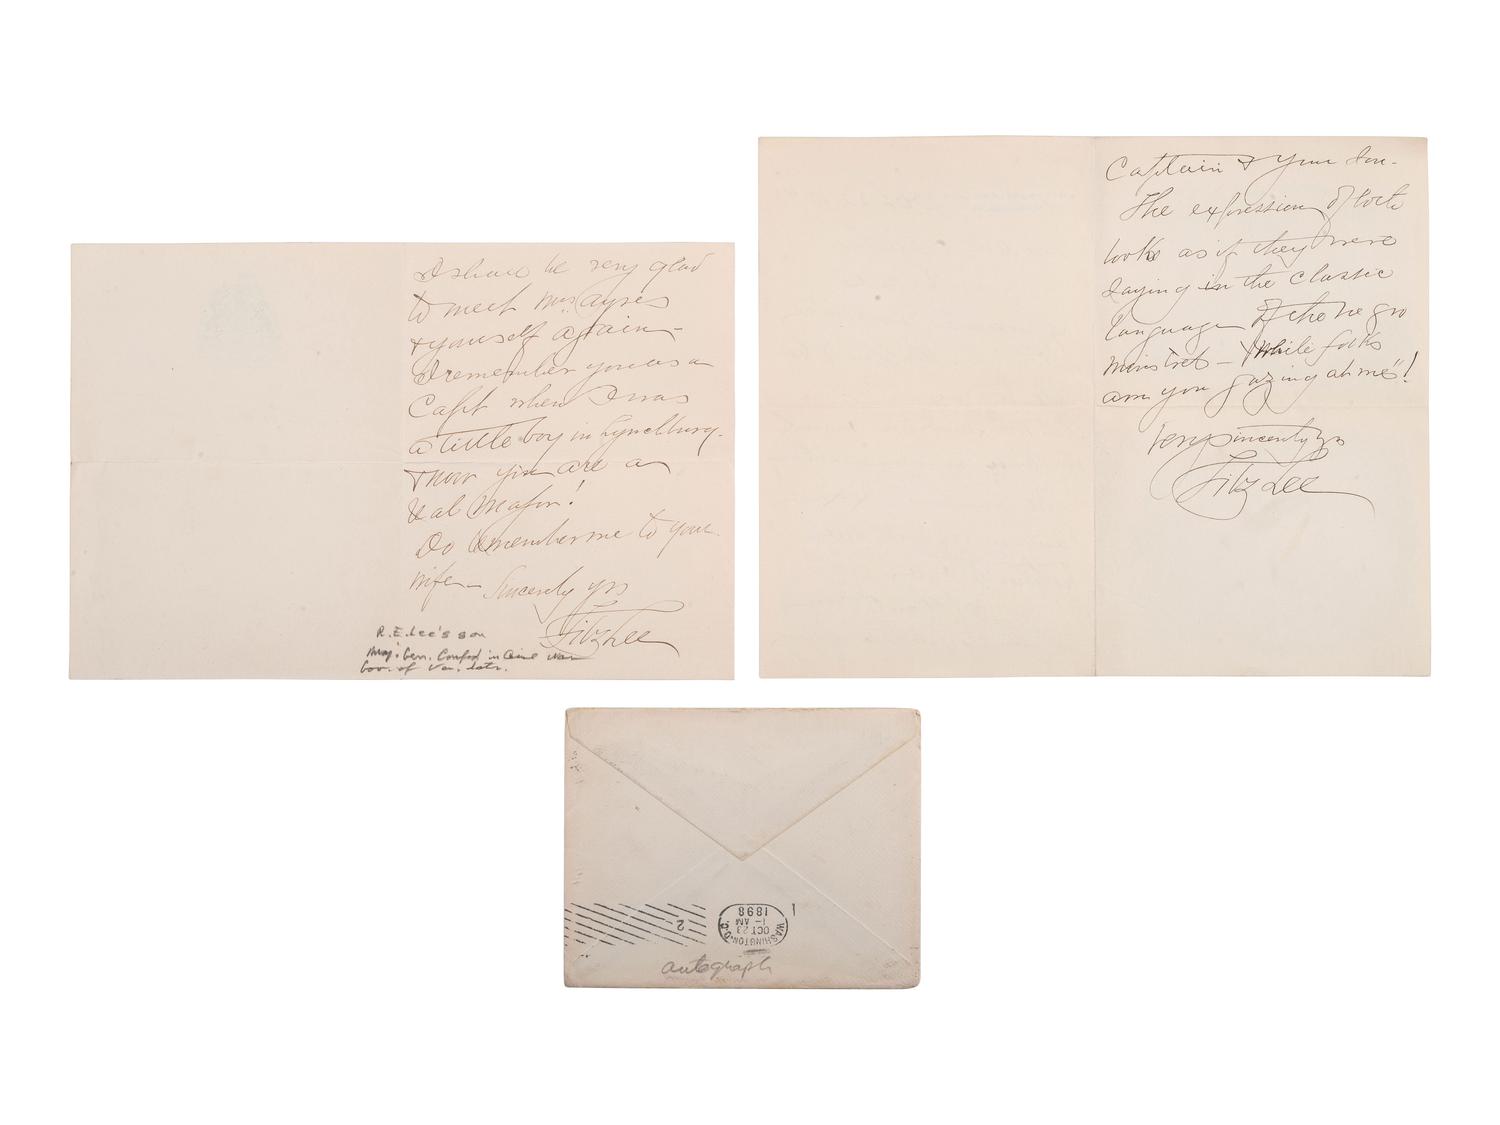 I shall be very glad
to meet Mrs Ayres
& yourself again -
I remember you as a
Capt when I was
a little boy in Lynchburg -
& now you are a
real Major!
Do remember me to your
wife - Sincerely yrs
Fitz Lee
R.E. Lee's son
Maj. Gen. Confed in Civil War
Gov. of Va. later.
Captain & your son -
The expression of both
looks as if they were
saying in the classic
language of the negro
minstrels - "White folks
am you gazing at me"!
Very sincerely yrs
Fitz Lee
WASHINGTON, D.C.
OCT 23
1-AM
1898
1
2
autograph